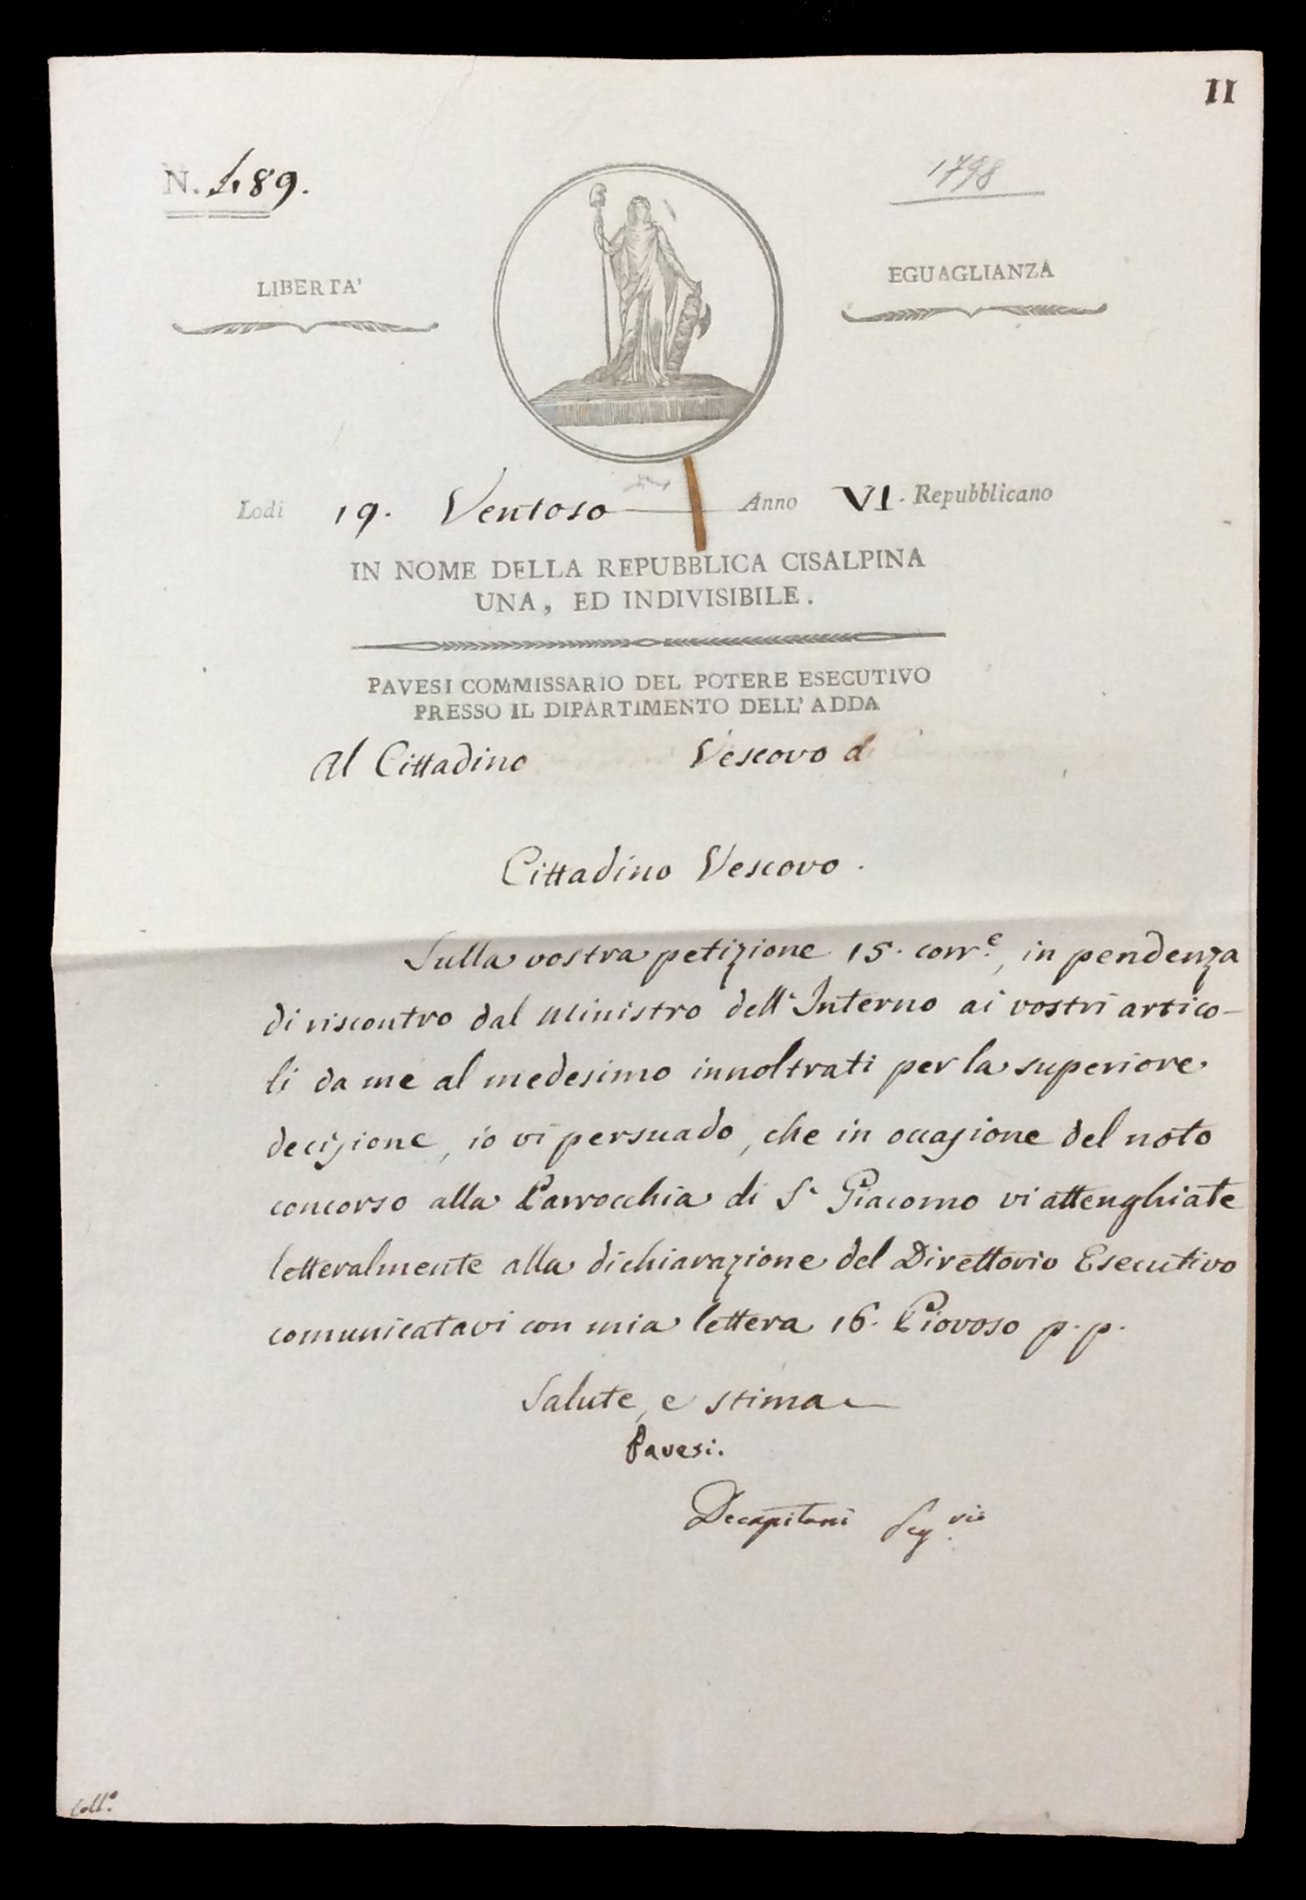 II
N. 489.
1798
LIBERTA'
EGUAGLIANZA
Lodi 19. Ventoso Anno VI. Repubblicano
IN NOME DELLA REPUBBLICA CISALPINA
UNA, ED INDIVISIBILE.
PAVESI COMMISSARIO DEL POTERE ESECUTIVO
PRESSO IL DIPARTIMENTO DELL' ADDA
Al Cittadino Vescovo di
Cittadino Vescovo.
Sulla vostra petizione 15. corr.e, in pendenza
di riscontro dal Ministro dell'Interno ai vostri artico-
li da me al medesimo innoltrati per la superiore
decisione, io vi persuado, che in occasione del noto
concorso alla Parrocchia di S. Giacomo vi attenghiate
letteralmente alla dichiarazione del Direttorio Esecutivo
comunicatavi con mia lettera 16. Piovoso p. p.
Salute, e stima
Pavesi.
Decapitani Seg.rio
Coll.o